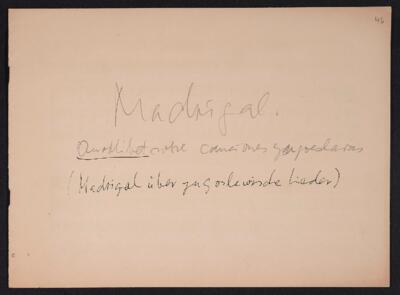 46
Madrigal.
Quodlibet sobre canciones yugoeslavas
(Madrigal über jugoslawische Lieder)